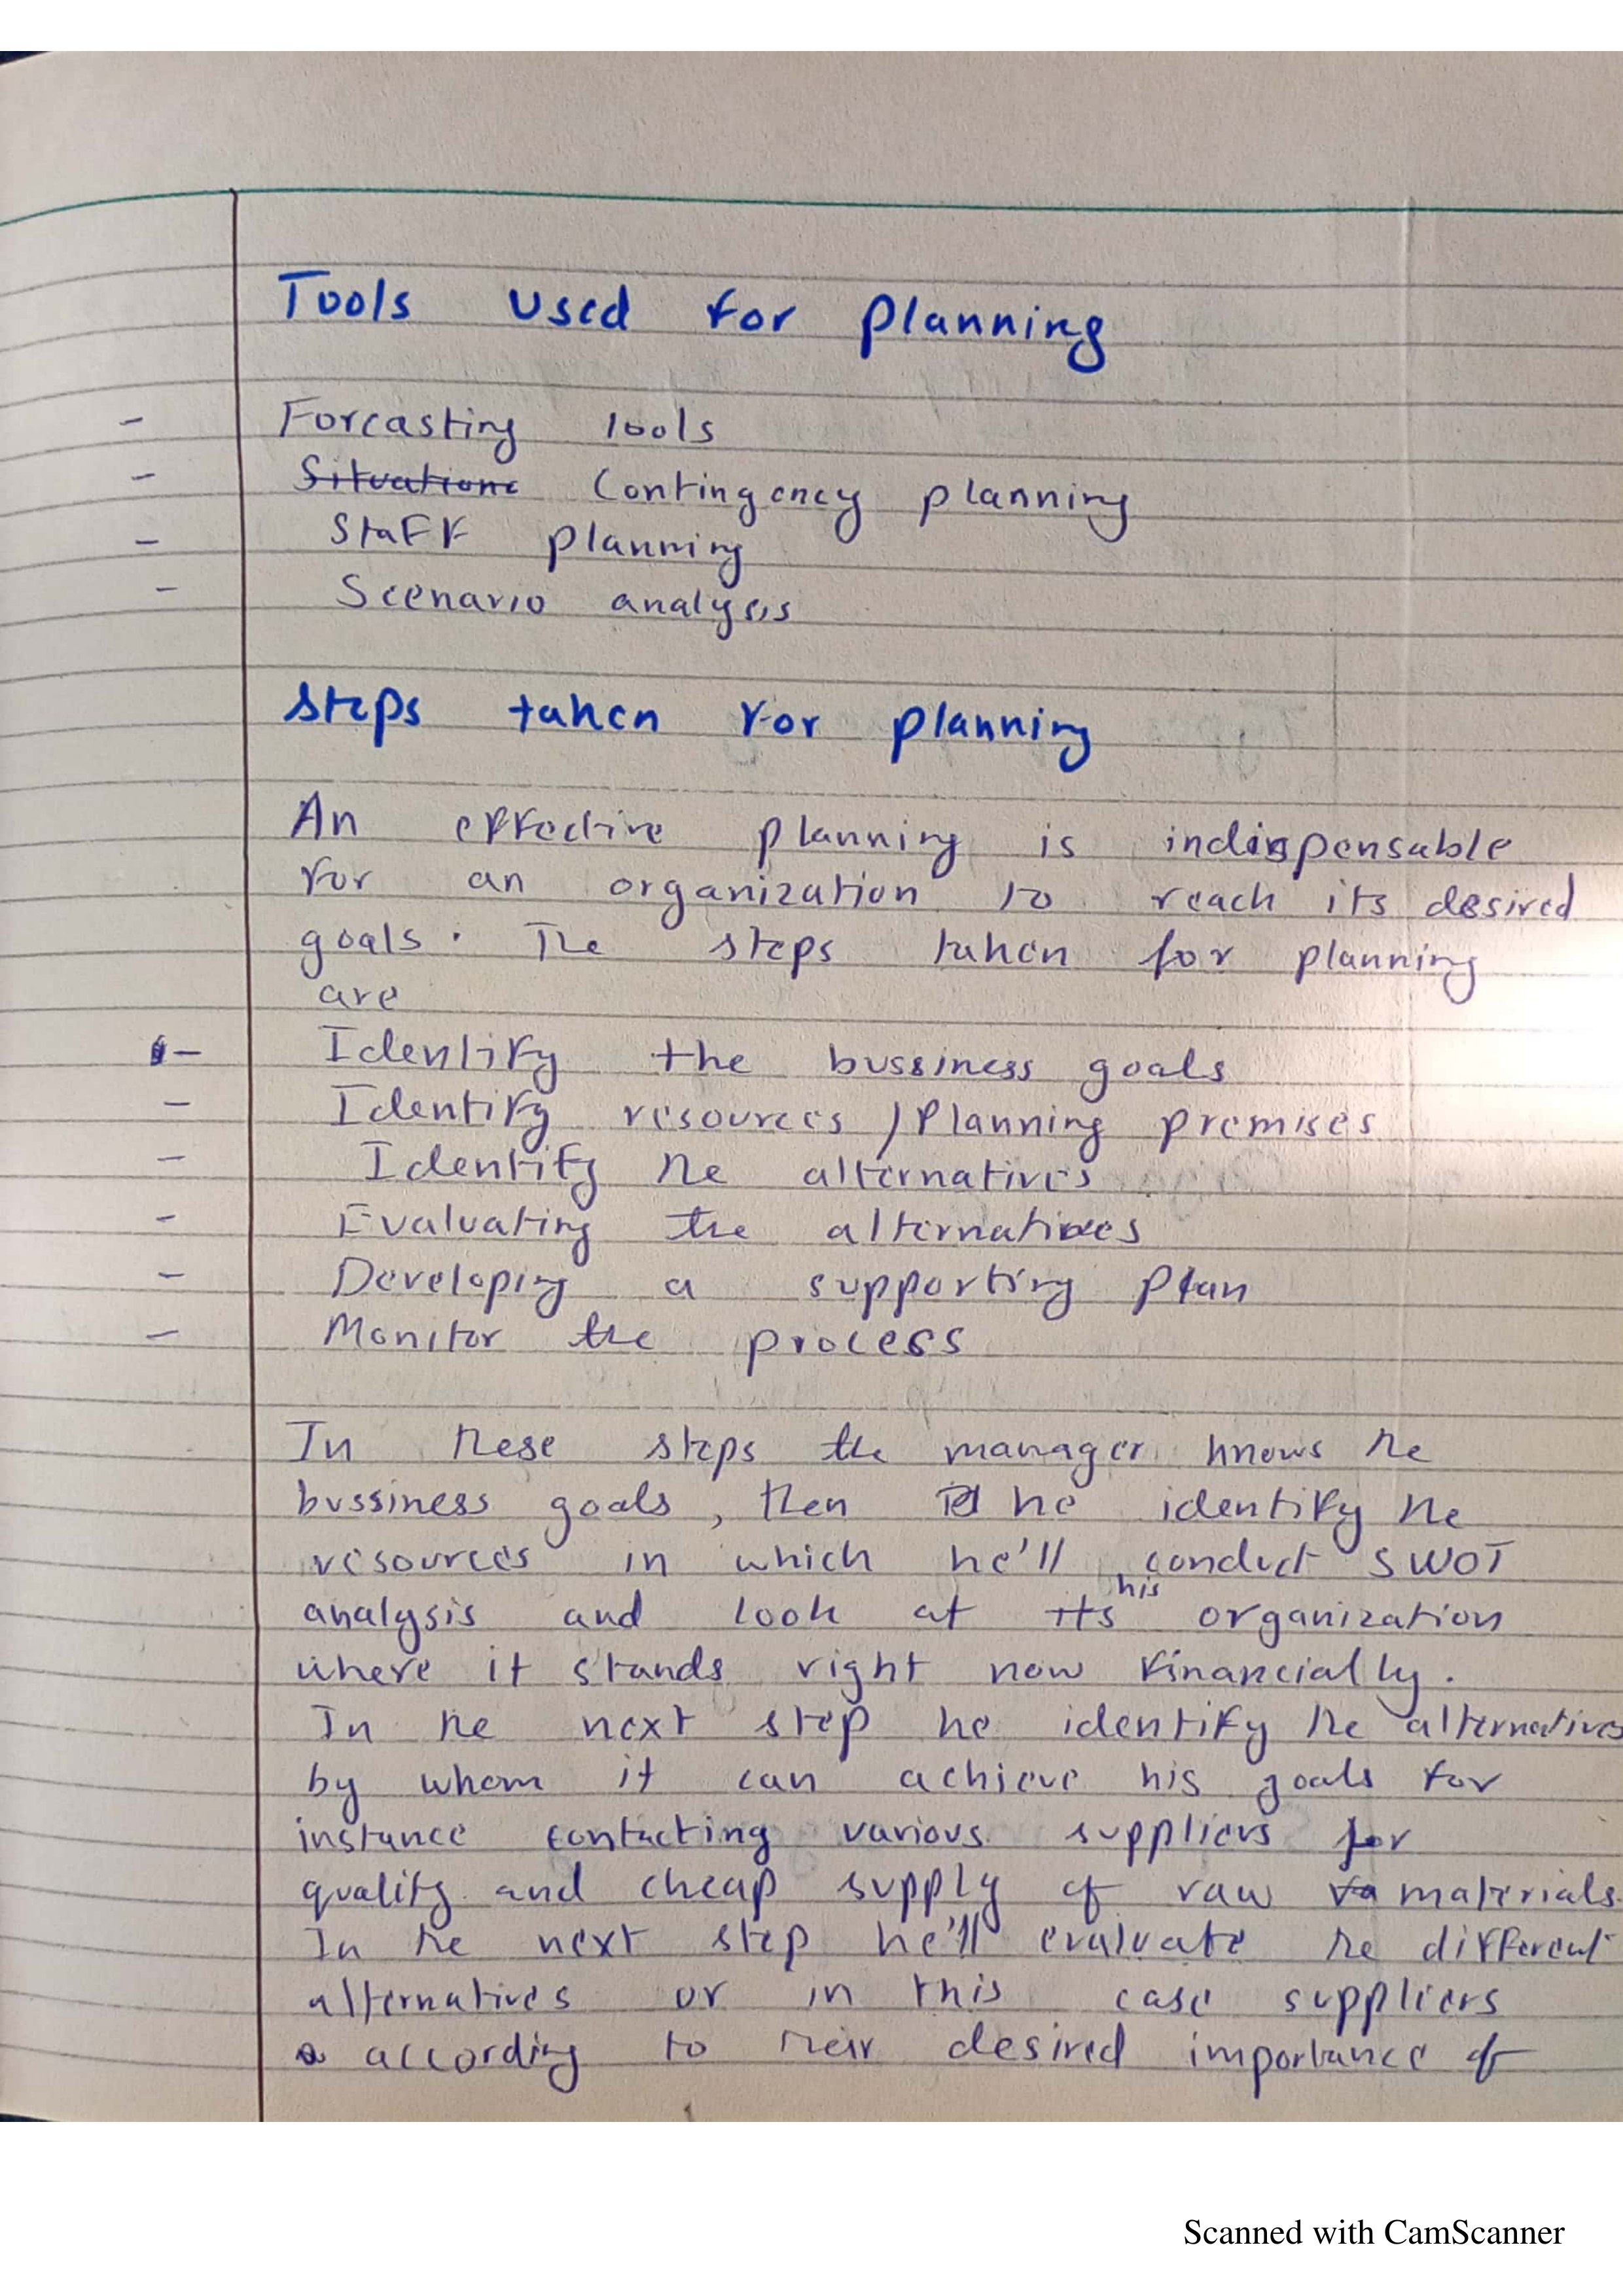 Tools used for planning
- Forcasting tools
- ~~Situations~~ Contingency planning
- Staff planning
- Scenario analysis
Steps taken for planning
An effective planning is indispensable
for an organization to reach its desired
goals. The steps taken for planning
are
- Identify the bussiness goals
- Identify resources / Planning premises
- Identify the alternatives
- Evaluating the alternatives
- Developing a supporting plan
- Monitor the process
In these steps the manager knows the
bussiness goals, then he identify the
resources in which he'll conduct SWOT
analysis and look at ~~its~~ his organization
where it stands right now financially.
In the next step he identify the alternatives
by whom it can achieve his goals for
instance contacting various suppliers for
quality and cheap supply of raw materials.
In the next step he'll evaluate the different
alternatives or in this case suppliers
according to their desired importance of
Scanned with CamScanner